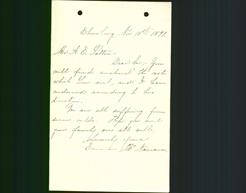 Nov 18th 1892
Mr. A. E.
Dear Sir, You
will find enclosed the note
which you sent, and I have
endorsed according to the
direction.
We are all suffering from
severe colds. Hope you and
your family are all well.
Sincerely yours